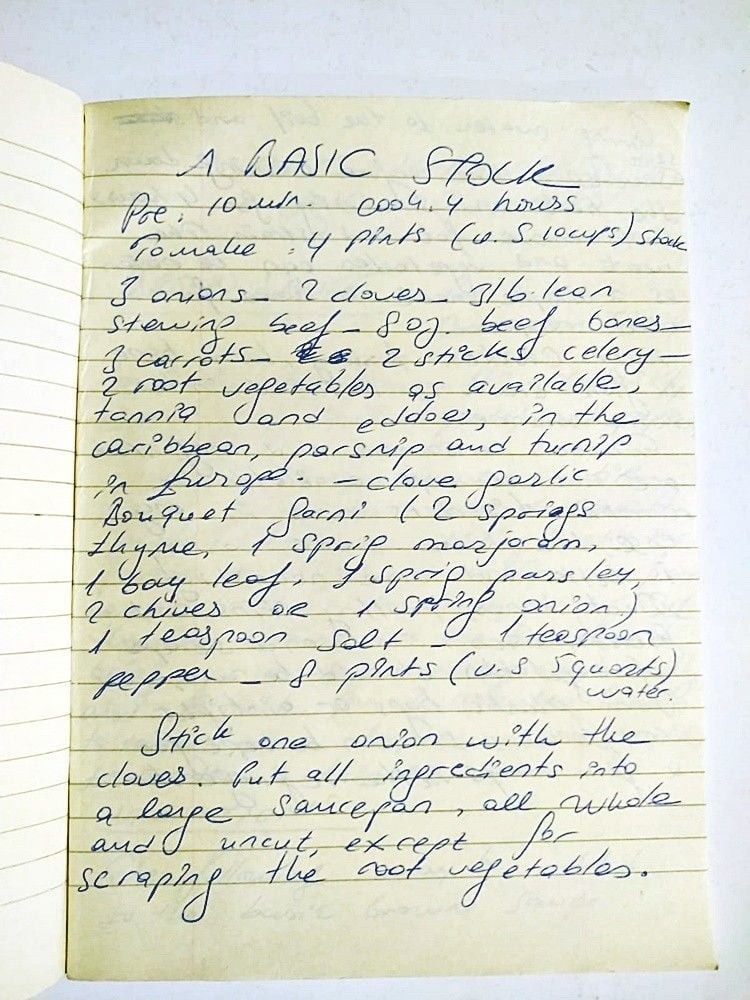 A BASIC STOCK
Pre: 10 min. cook. 4 hours
To make: 4 pints (U.S 10 cups) stock
3 onions - 2 cloves - 3 lb. lean
stewing beef - 8 oz. beef bones -
3 carrots - 2 sticks celery -
2 root vegetables as available,
tannia and eddoes, in the
caribbean, parsnip and turnip
in Europe. - clove garlic
Bouquet garni (2 sprigs
thyme, 1 sprig marjoram,
1 bay leaf, 1 sprig parsley,
2 chives or 1 spring onion)
1 teaspoon salt - 1 teaspoon
pepper - 8 pints (U.S 5 quarts)
water.
Stick one onion with the
cloves. Put all ingredients into
a large saucepan, all whole
and uncut, except for
scraping the root vegetables.